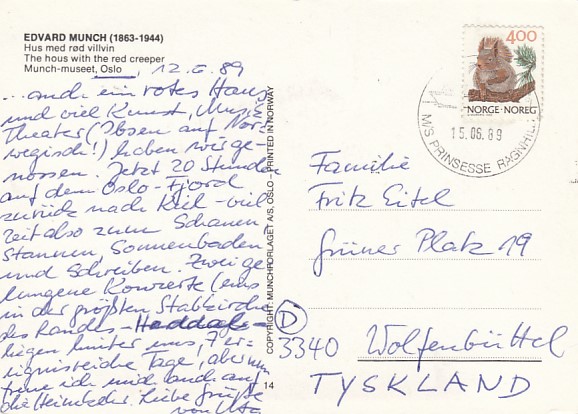 EDVARD MUNCH (1863-1944)
Hus med rød villvin
The hous with the red creeper
Munch-museet, Oslo
, 12.6.89
...auch ein rotes Haus
und viel Kunst, Musik
Theater (Ibsen auf Nor-
wegisch!) haben wir ge-
nossen. Jetzt 20 Stunden
auf dem Oslo-Fjord
zurück nach Kiel - viel
Zeit also zum Schauen
Staunen, Sonnenbaden
und Schreiben. Zwei ge-
lungene Konzerte (eins
in der größten Stabkirche
des Landes - Heddal) -
liegen hinter uns, 7 er-
eignisreiche Tage, aber nun
freue ich mich auch auf
die Heimkehr. Liebe Grüße
von Uta
COPYRIGHT: MUNCHFORLAGET A/S, OSLO - PRINTED IN NORWAY
14
400
NORGE·NOREG
M/S PRINSESSE RAGNHILD
15.06.89
Familie
Fritz Eitel
Grüner Platz 19
D
3340 Wolfenbüttel
TYSKLAND